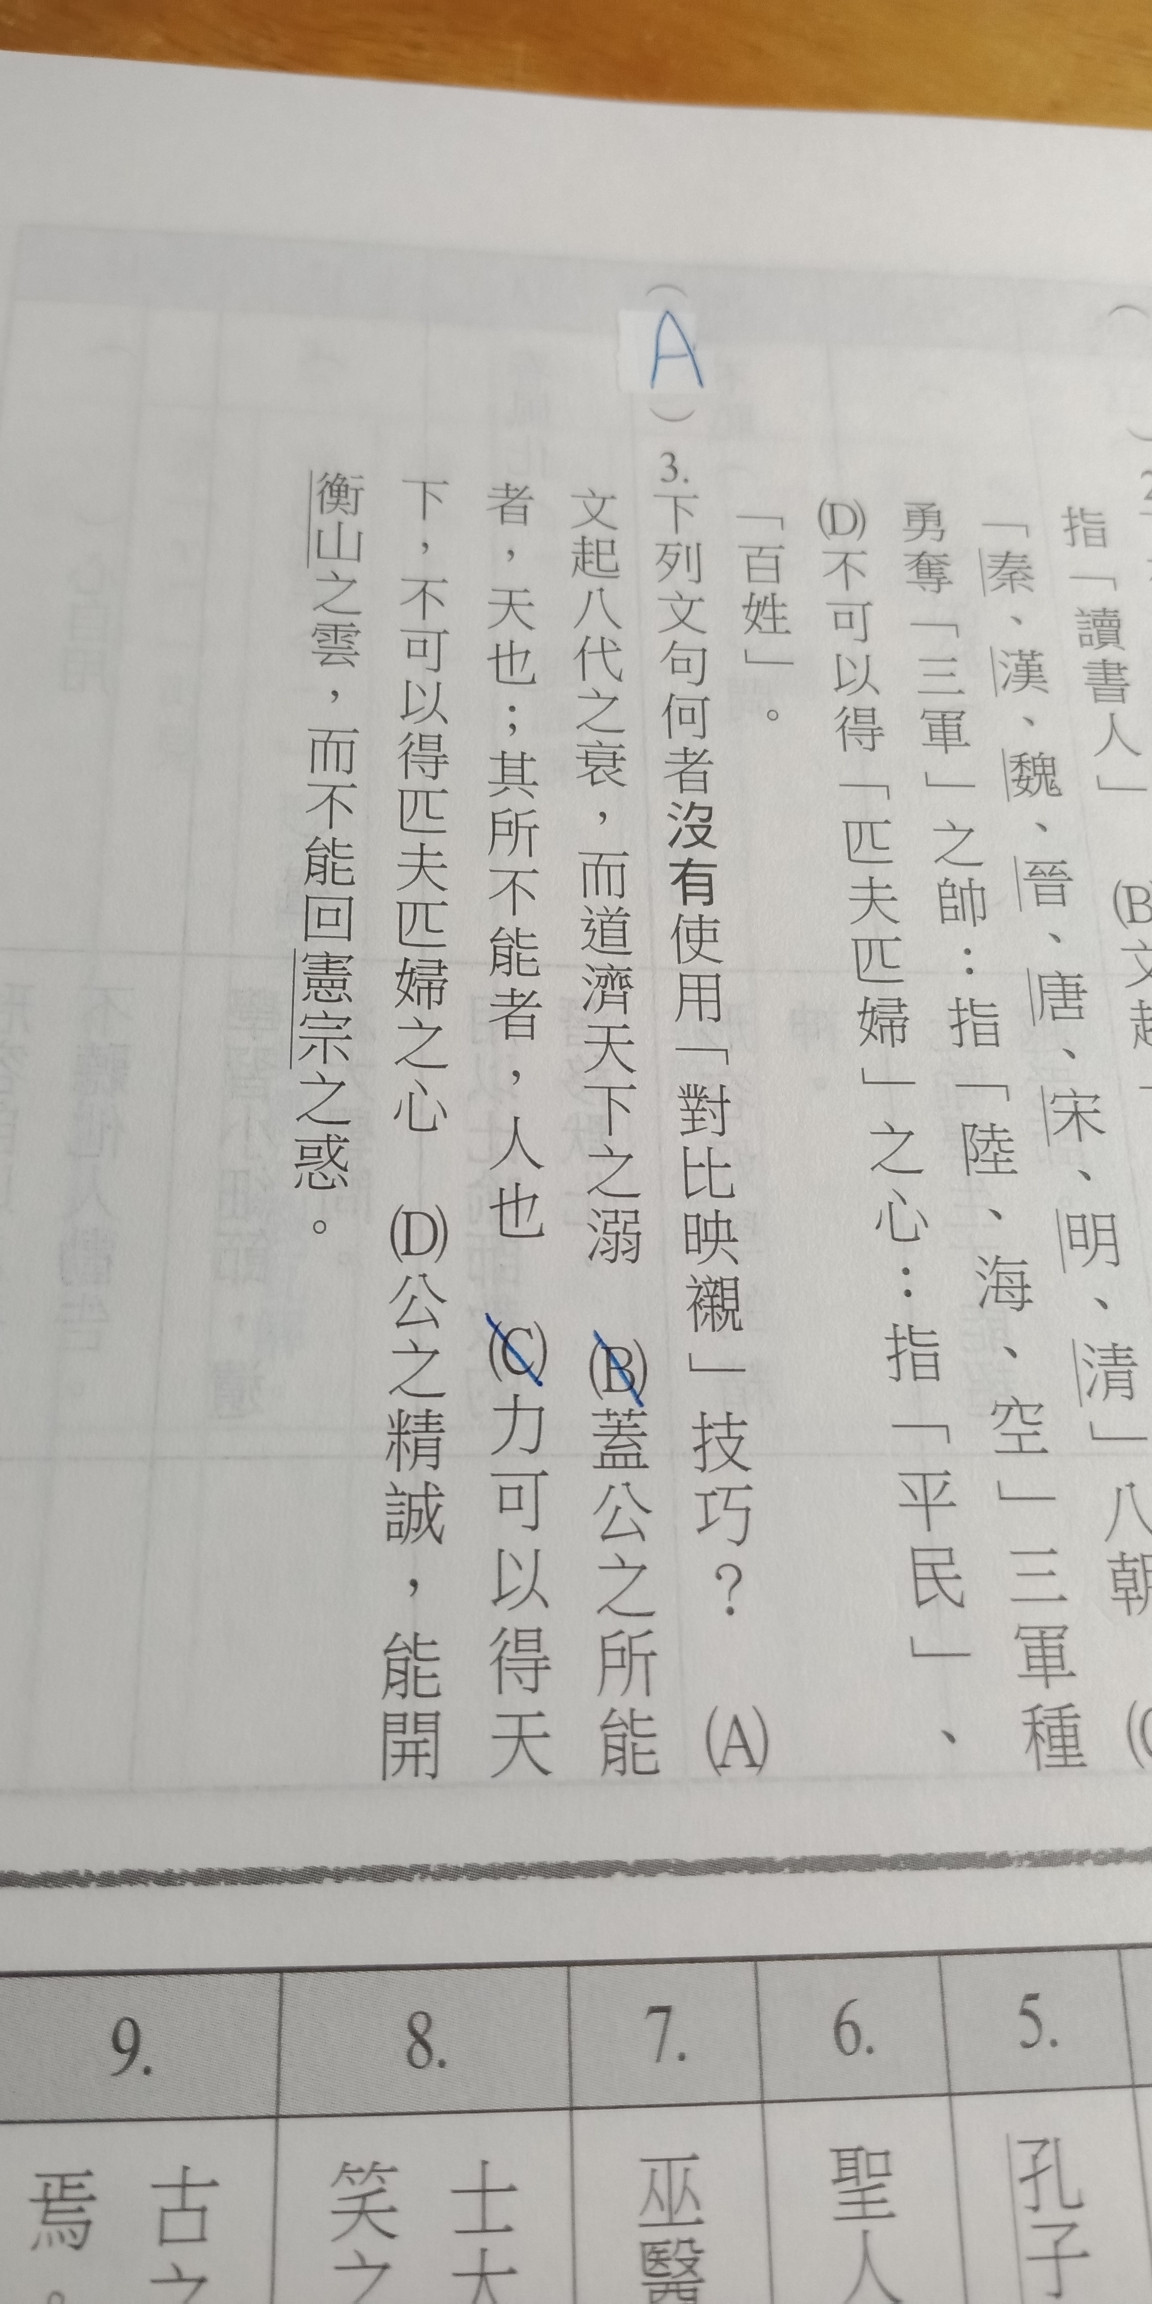 指「讀書人」
「秦、漢、魏、晉、唐、宋、明、清」八朝
勇奪「三軍」之帥：指「陸、海、空」三軍種
(D)不可以得「匹夫匹婦」之心：指「平民」、
「百姓」。
(A)3.下列文句何者沒有使用「對比映襯」技巧？ (A)
文起八代之衰，而道濟天下之溺 (B)蓋公之所能
者，天也；其所不能者，人也 (C)力可以得天
下，不可以得匹夫匹婦之心 (D)公之精誠，能開
衡山之雲，而不能回憲宗之惑。
5.
6.
7.
8.
9.
孔子
聖人
巫醫
士大
笑之
古之
焉。